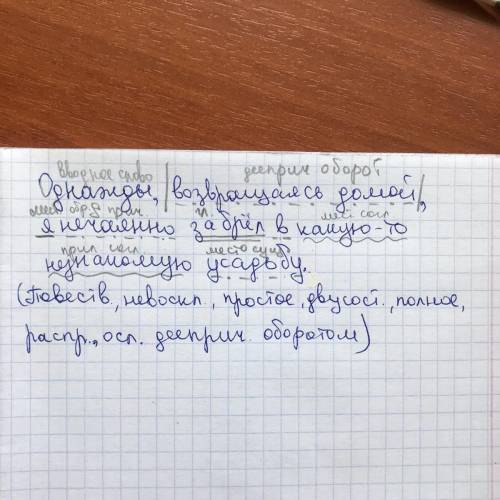 вводное слово дееприч оборот
Однажды, |возвращаясь домой|,
мест прич. гл. мест согл
я нечаянно забрёл в какую-то
прил согл. место сущ
незнакомую усадьбу.
(Повеств, невоскл., простое, двусост., полное,
распр., осл. дееприч. оборотом)